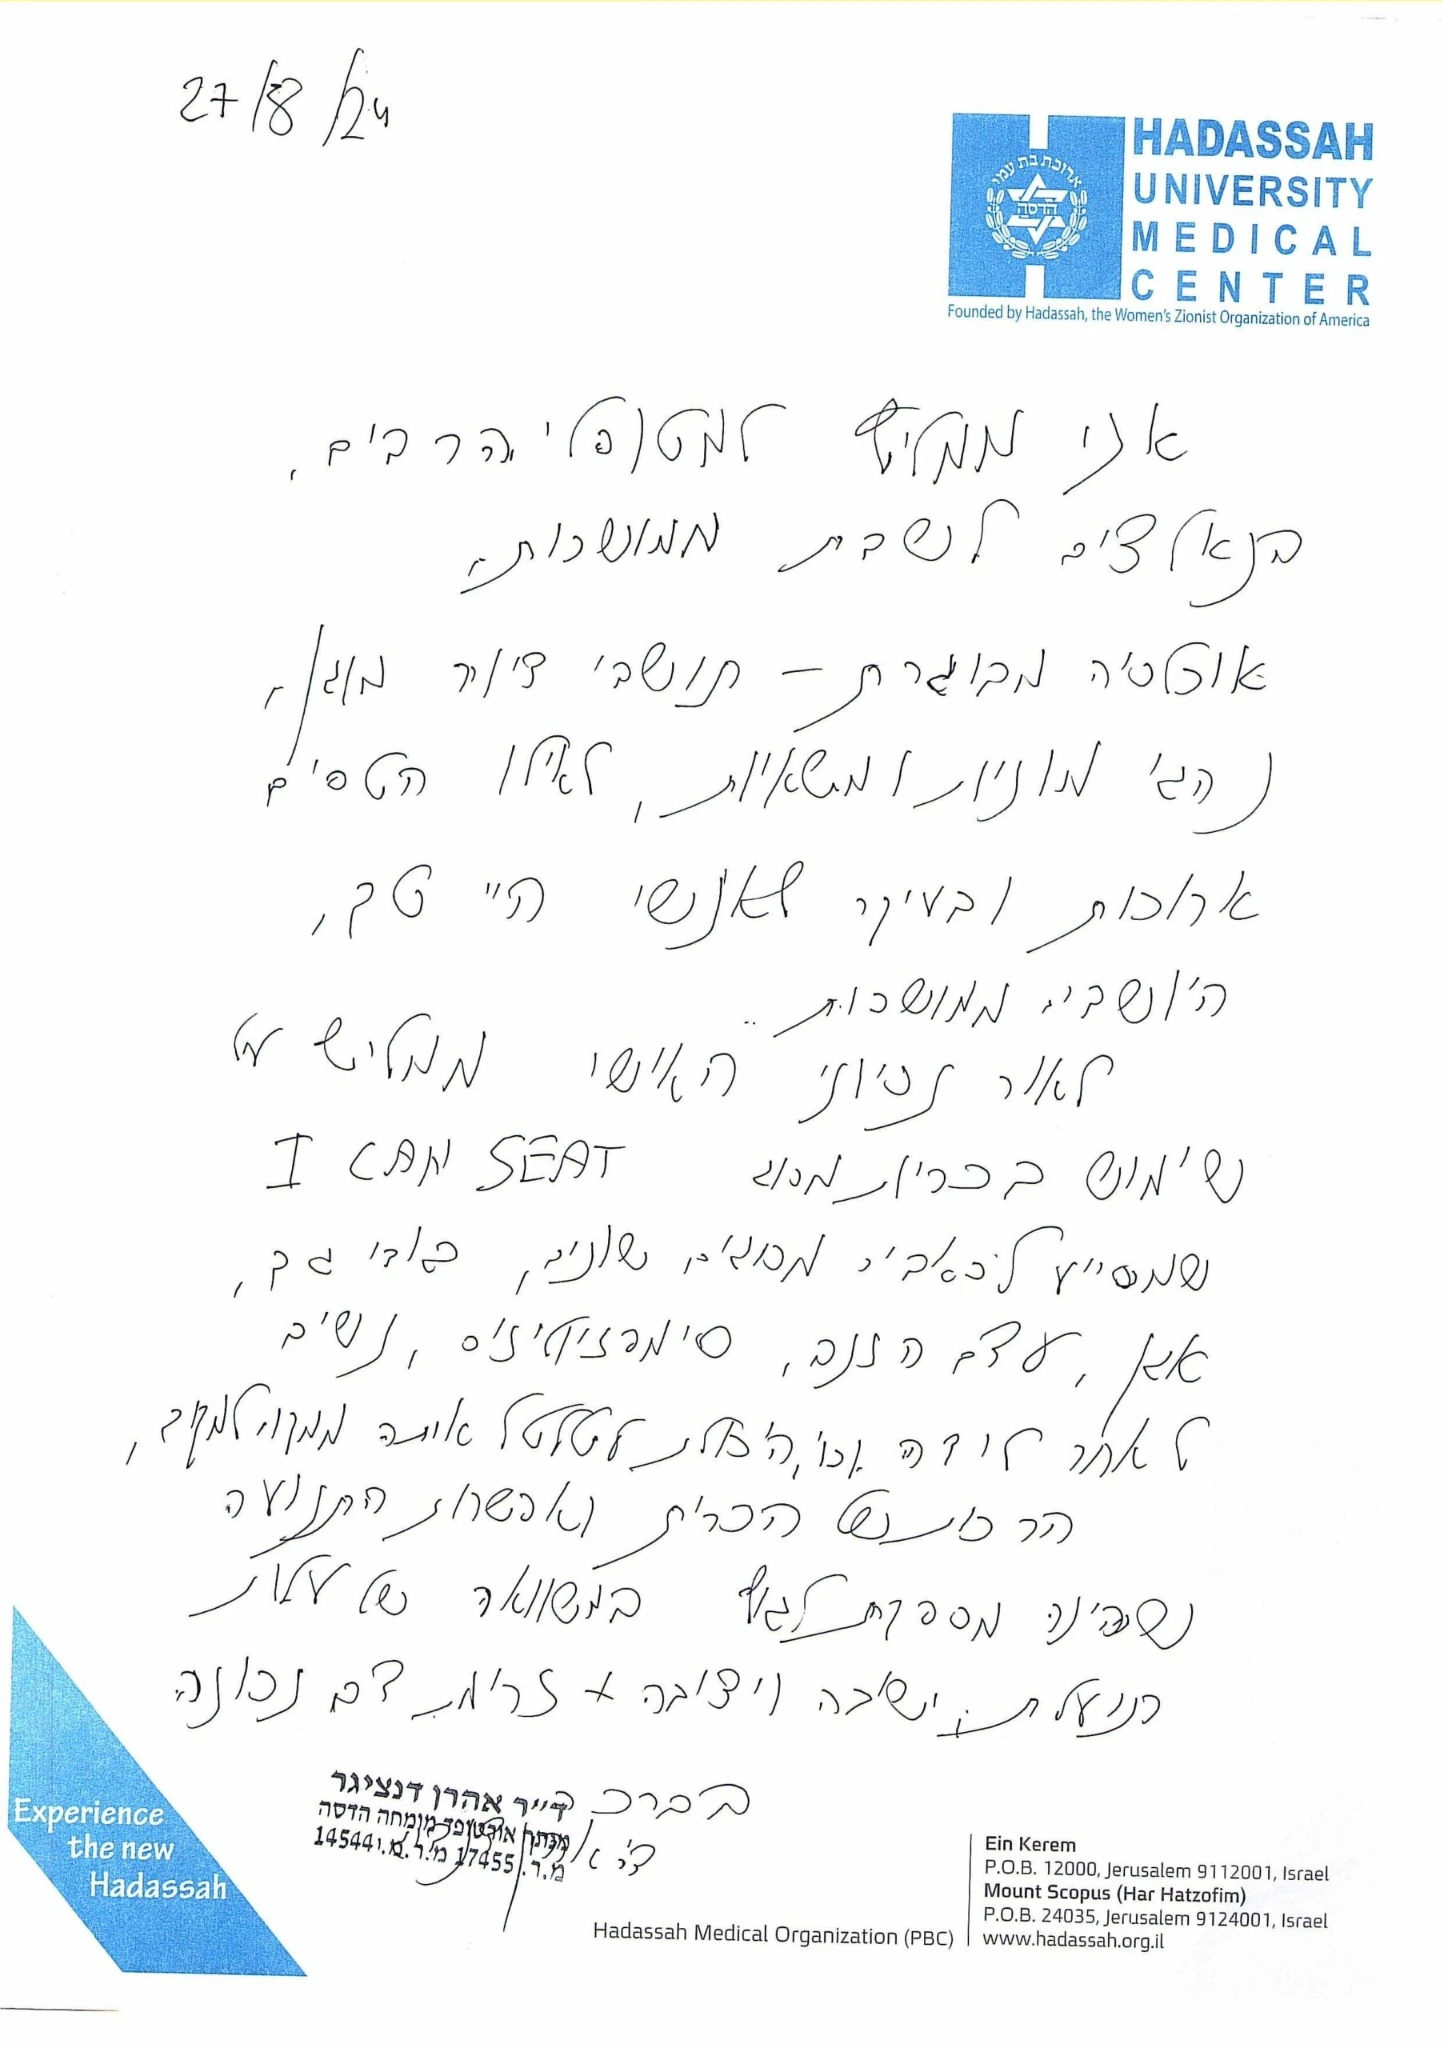 27/8/24
HADASSAH
UNIVERSITY
MEDICAL
CENTER
ארוכת בת עמי
הדסה
Founded by Hadassah, the Women's Zionist Organization of America
אני ממליץ למטופלי הרבים,
הנאלצים לשבת ממושכות,
אוכלוסיה מבוגרת – תושבי דיור מוגן,
נהגי מוניות ומשאיות, לאילו הטסים
ארוכות ובעיקר לאנשי היי טק,
היושבים ממושכות..
לאור נסיוני האישי ממליץ על
שימוש בכריות מסוג I CAN SEAT
שמסייע לכאבים מסוגים שונים, פורי גב,
אגן, עצם הזנב, סימפיזיטיס, נשים
לאחר לידה וכו', היכולת לטלטל אותה ממקום למקום,
הרכות של הכרית ואפשרות התנועה
שהינה מספקת לגוף במשוואה של עלות
תועלת, ישיבה ויציבה + זרימת דם נכונה
בברכה
ד"ר אהרן דנציגר
מנתח אורטופד מומחה הדסה
מ.ר. 17455 מ.ר.מ. 14544
Experience
the new
Hadassah
Hadassah Medical Organization (PBC)
Ein Kerem
P.O.B. 12000, Jerusalem 9112001, Israel
Mount Scopus (Har Hatzofim)
P.O.B. 24035, Jerusalem 9124001, Israel
www.hadassah.org.il